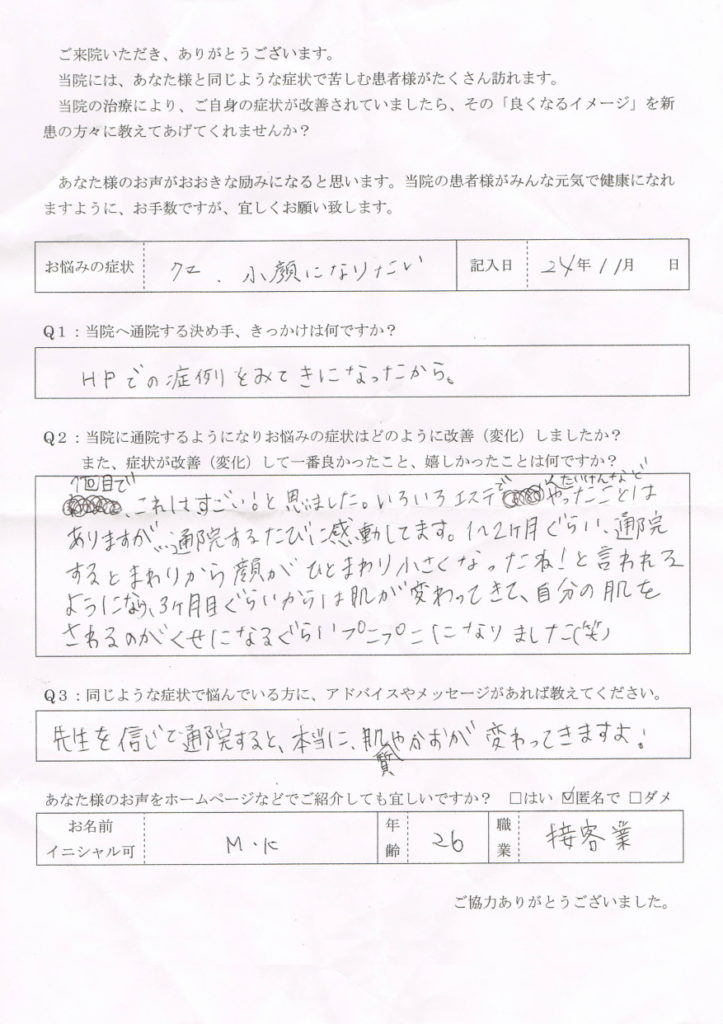 ご来院いただき、ありがとうございます。
当院には、あなた様と同じような症状で苦しむ患者様がたくさん訪れます。
当院の治療により、ご自身の症状が改善されていましたら、その「良くなるイメージ」を新
患の方々に教えてあげてくれませんか？
あなた様のお声がおおきな励みになると思います。当院の患者様がみんな元気で健康になれ
ますように、お手数ですが、宜しくお願い致します。
お悩みの症状 小顔になりたい 記入日 24年11月 日
Q1：当院へ通院する決め手、きっかけは何ですか？
HPでの症例をみてきになったから。
Q2：当院に通院するようになりお悩みの症状はどのように改善（変化）しましたか？
また、症状が改善（変化）して一番良かったこと、嬉しかったことは何ですか？
1回目で、これはすごい！と思いました。いろいろエステでたいけんなどやったことは
ありますが、通院するたびに感動してます。1〜2ヶ月ぐらい、通院
するとまわりから顔がひとまわり小さくなったね！と言われる
ようになり、3ヶ月目ぐらいからは肌が変わってきて、自分の肌を
さわるのがくせになるぐらいプニプニになりました(笑)
Q3：同じような症状で悩んでいる方に、アドバイスやメッセージがあれば教えてください。
先生を信じて通院すると、本当に、肌質やかおが変わってきますよ！
あなた様のお声をホームページなどでご紹介しても宜しいですか？ □はい ☑匿名で □ダメ
お名前 イニシャル可 M・K 年齢 26 職業 接客業
ご協力ありがとうございました。